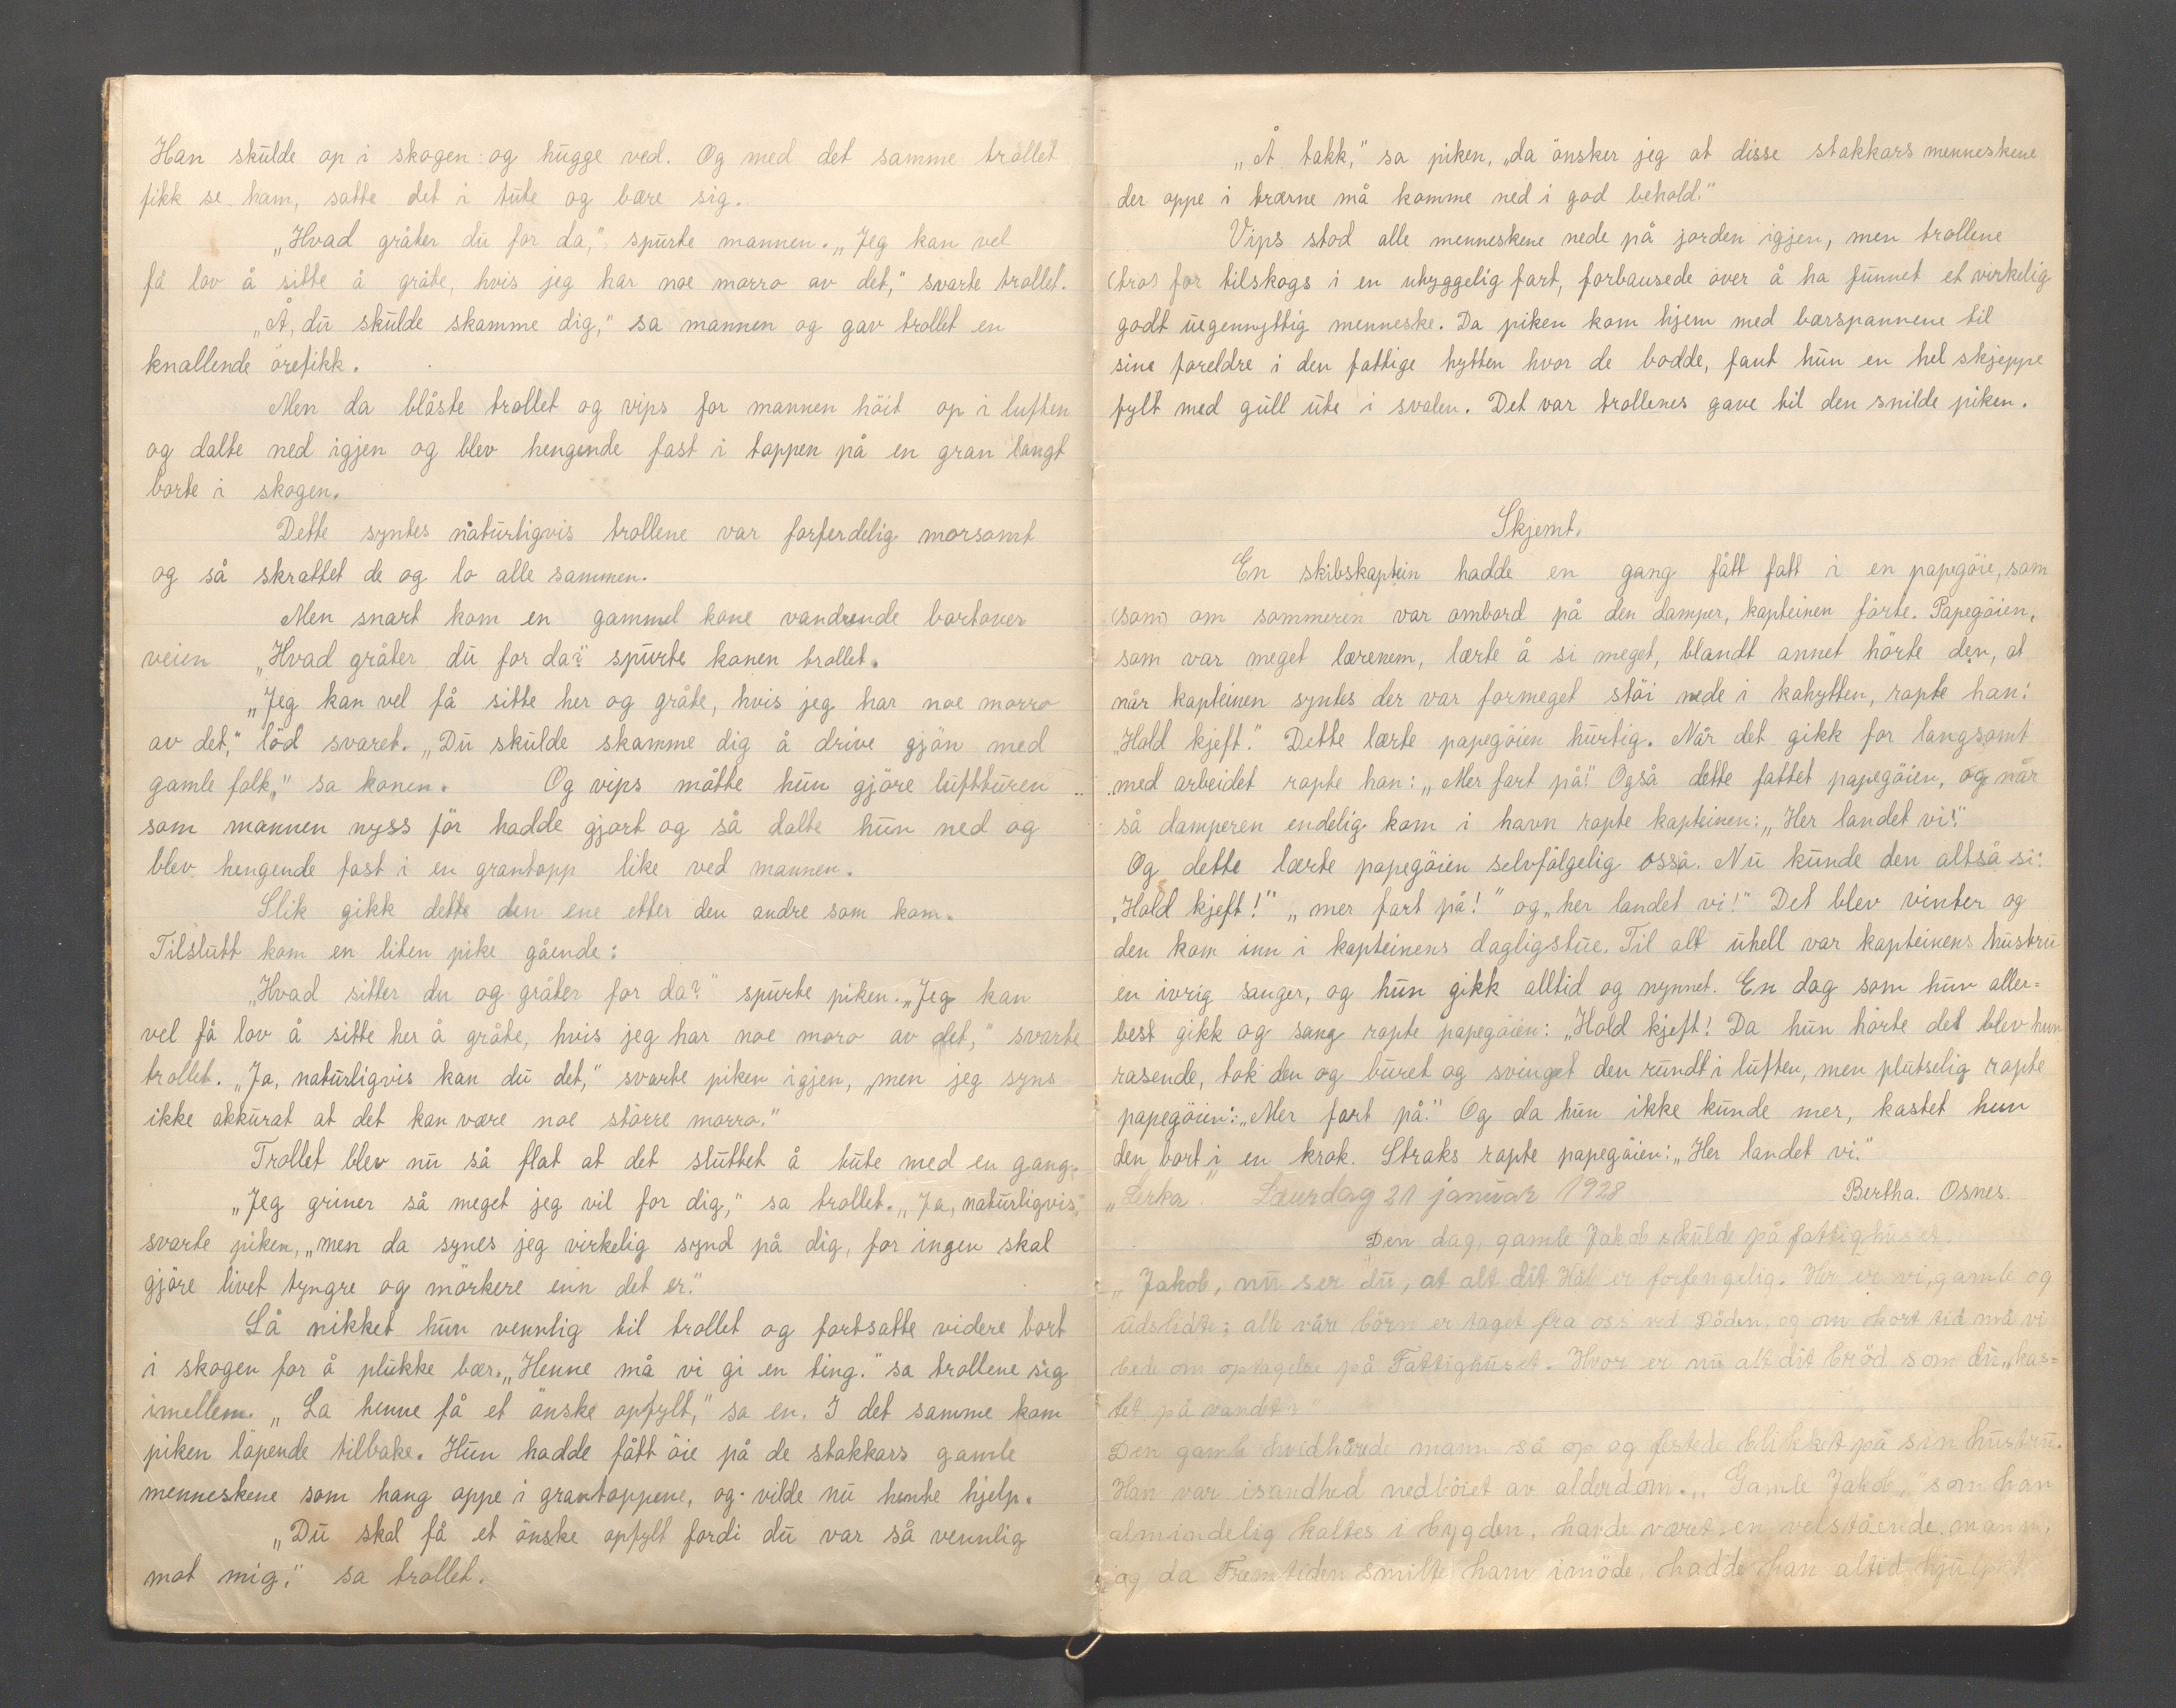 Han skulde op i skogen og hugge ved. Og med det samme trollet
fikk se ham, satte det i tute og bære sig.
„Hvad gråter du for da,” spurte mannen. „Jeg kan vel
få lov å sitte å gråte, hvis jeg har noe morro av det,” svarte trollet.
„Å, du skulde skamme dig,” sa mannen og gav trollet en
knallende örefikk.
Men da blåste trollet og vips for mannen höit op i luften
og dalte ned igjen og blev hengende fast i toppen på en gran langt
borte i skogen.
Dette syntes naturligvis trollene var forferdelig morsomt
og så skrattet de og lo alle sammen.
Men snart kom en gammel kone vandrende bortover
veien „Hvad gråter du for da?” spurte konen trollet.
„Jeg kan vel få sitte her og gråte, hvis jeg har noe morro
av det,” löd svaret. „Du skulde skamme dig å drive gjön med
gamle folk,” sa konen. Og vips måtte hun gjöre luftturen
som mannen nyss för hadde gjort og så dalte hun ned og
blev hengende fast i en grantopp like ved mannen.
Slik gikk dette den ene etter den andre som kom.
Tilslutt kom en liten pike gående:
„Hvad sitter du og gråter for da?” spurte piken. „Jeg kan
vel få lov å sitte her å gråte, hvis jeg har noe moro av det,” svarte
trollet. „Ja, naturligvis kan du det,” svarte piken igjen, men jeg syns
ikke akkurat at det kan være noe större morro.”
Trollet blev nu så flat at det sluttet å tute med en gang.
„Jeg griner så meget jeg vil for dig,” sa trollet. „Ja, naturligvis,”
svarte piken, „men da synes jeg virkelig synd på dig, for ingen skal
gjöre livet tyngre og mörkere enn det er.”
Så nikket hun vennlig til trollet og fortsatte videre bort
i skogen for å plukke bær. „Henne må vi gi en ting.” sa trollene sig
imellem. „La henne få et önske opfylt,” sa en. I det samme kom
piken löpende tilbake. Hun hadde fått öie på de stakkars gamle
menneskene som hang oppe i grantoppene, og vilde nu hente hjelp.
„Du skal få et önske opfylt fordi du var så vennlig
mot mig,” sa trollet.
„Å takk,” sa piken, „da önsker jeg at disse stakkars menneskene
der oppe i trærne må komme ned i god behold.”
Vips stod alle menneskene nede på jorden igjen, men trollene
(tro) for tilskogs i en uhyggelig fart, forbausede over å ha funnet et virkelig
godt uegennyttig menneske. Da piken kom hjem med bærspannene til
sine foreldre i den fattige hytten hvor de bodde, fant hun en hel skjeppe
fylt med gull ute i svalen. Det var trollenes gave til den snilde piken.
Skjemt.
En skibskaptein hadde en gang fått fatt i en papegöie, som
(som) om sommeren var ombord på den damper, kapteinen förte. Papegöien,
som var meget lærenem, lærte å si meget, blandt annet hörte den, at
når kapteinen syntes der var formeget stöi nede i kahytten, ropte han:
„Hold kjeft.” Dette lærte papegöien hurtig. Når det gikk for langsomt
med arbeidet ropte han: „Mer fart på!” Også dette fattet papegöien, og når
så damperen endelig kom i havn ropte kapteinen: „Her landet vi!”
Og dette lærte papegöien selvfölgelig osså. Nu kunde den altså si:
„Hold kjeft!” „mer fart på!” og „her landet vi!” Det blev vinter og
den kom inn i kapteinens dagligstue. Til alt uhell var kapteinens hustru
en ivrig sanger, og hun gikk alltid og nynnet. En dag som hun aller-
best gikk og sang ropte papegöien: „Hold kjeft! Da hun hörte det blev hun
rasende, tok den og buret og svinget den rundt i luften, men plutselig ropte
papegöien: „Mer fart på.” Og da hun ikke kunde mer, kastet hun
den bort i en krok. Straks ropte papegöien: „Her landet vi.”
„Lerka”. Laurdag 21 januar 1928 Bertha. Osnes.
Den dag, gamle Jakob skulde på fattighuset.
„Jakob, nu ser du, at alt dit Håb er forfengelig. Her er vi, gamle og
udslidte; alle våre börn er taget fra oss ved Döden, og om kort tid må vi
bede om optagelse på Fattighuset. Hvor er nu alt dit bröd som du „kas-
tet på vandet?”
Den gamle hvidhårede mann så op og festede blikket på sin hustru.
Han var isandhed nedböiet av alderdom. „Gamle Jakob,” som han
almindelig kaltes i bygden, havde været en velstående mann,
og da Fremtiden smilte ham imöde, hadde han altid hjulpet